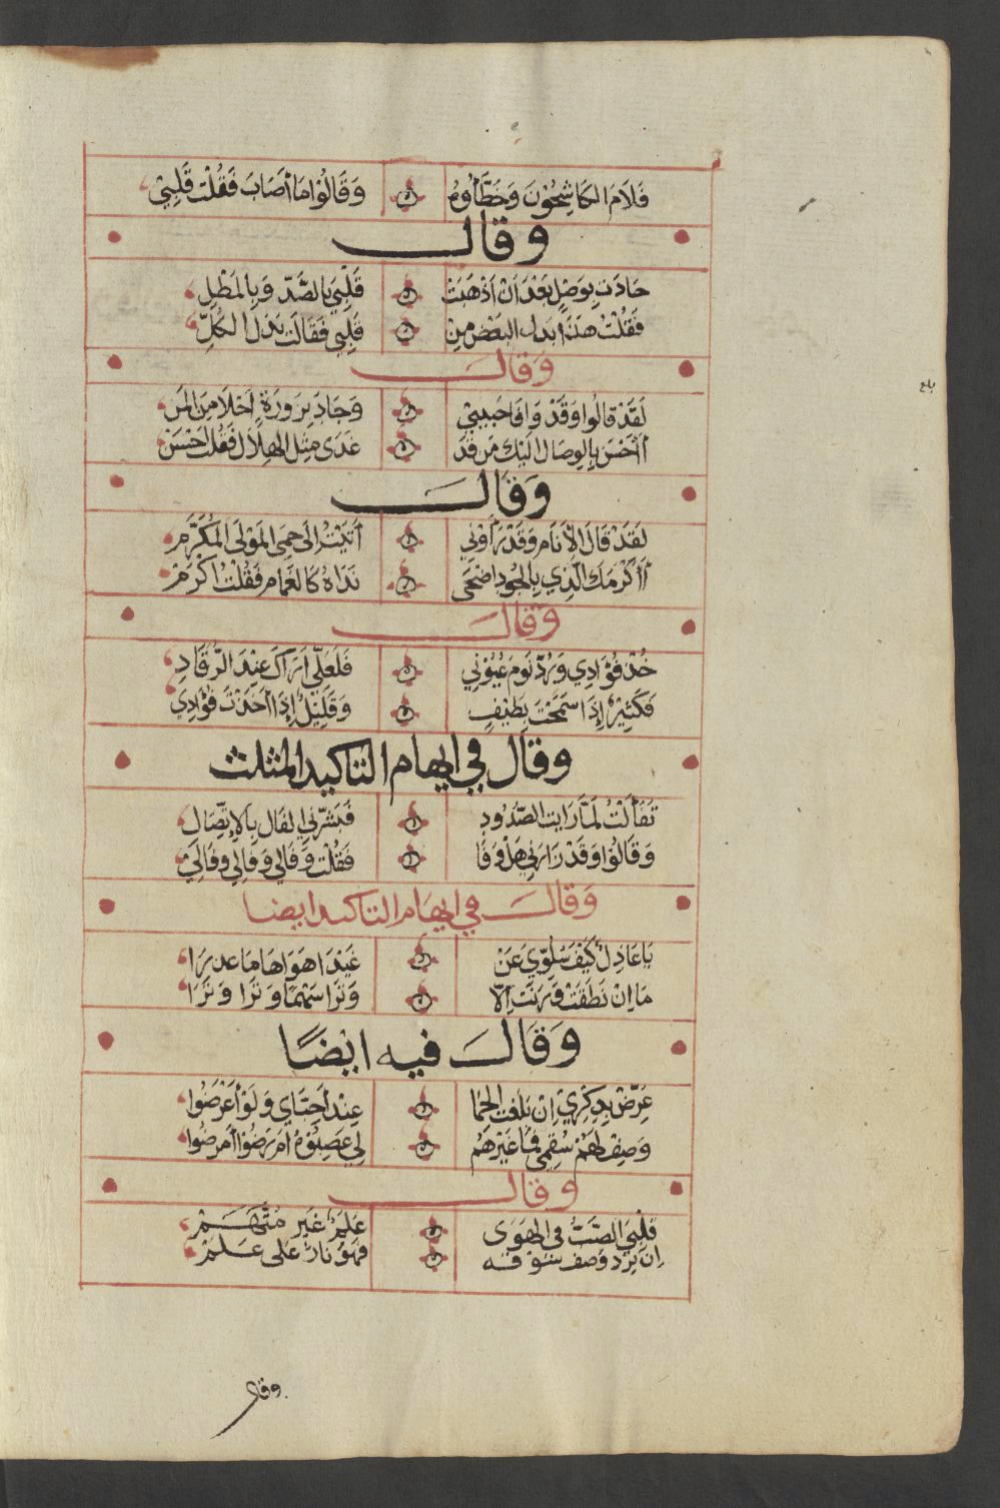 فَلَامَ الكَاشِحُونَ وَخَطَّأُوهُ وَقَالُوا مَا أَصَابَ فَقُلْتُ قَلْبِيْ
وقال
جادَت بِوَصْلٍ بَعْدَ أَنْ أَذْهَبَتْ قَلْبِيَ بِالصَّدِّ وَبِالمَطْلِ
فَقُلْتُ هَذَا بدل البَعْضِ مِنْ قَلْبِي فَقَالَتْ بَدَلُ الكُلِّ
وقال
لَقَدْ قالُوا وَقَدْ وَافَا حَبِيبِيْ وَجَادَ بِزَوْرَةٍ أَحْلَا مِنَ المَنْ
أَأَحْسَنَ بِالوِصَالِ الَيْكَ مَن قَدْ غَدَى مِثْلَ الهِلَالِ فَقُلْتُ احْسَنْ
وَقَال
لَقَدْ قَالَ الأَنَام وَقَدْ رَأَوْنِي أَتَيْتُ إِلَى حِمَى المَوْلَى المُكَرَّم
أَأَكْرَمَكَ الَّذِي بِالجُودِ اضحَى نَدَاهُ كَالغَمَامِ فَقُلْتُ اكْرَمْ
وَقَال
خُذْ فُؤَادِي وَرُدَّ نَومَ عُيُوْنِي فَلَعَلِّي أَرَاكَ عِنْدَ الرُّقَادِ
فَكَثِيْرٌ إِذَا سَمَحْتَ بِطَيْفٍ وَقَلِيْلٌ إِذَا أَخَذْتَ فُؤَادِي
وقال في ايهام التاكيد المثلث
تَفَأَّلْتُ لَمَّا رَايت الصُّدُودِ فَبَشَّرَنِي الفَال بِالإتِّصَال
وَقَالُوا وَقَدْ زَارَنِي هَلْ وَفَا فَقُلْت وَفَالِي وَفَالِي وفَالِيْ
وَقَال في ايهام التاكيد ايضا
يَا عَاذِل كَيْفَ سُلُوِّي عَنْ غَيْدَا هَوَاهَا مَا عدرَا
مَا اِنْ نَطَقَتْ وَرَنَتْ إِلّا وَتَرَا سَهْمًا وَتَرَا وَتَرَا
وَقَال فيه ايْضًا
عَرِّضْ بِذِكْرِي اِنْ بَلَغْت الحِمَا عِنْدَ أَحِبَّاي وَلَوْ أَعْرَضُوا
وَصِفْ لَهُمْ سُقْمِي فَمَا غَيْرهُمْ لِي غَضِبُوا أَمْ رَضُوا أَمرضُوا
وقال
قَلْبِيَ الصَّبُّ في الهَوَى عَلَمٌ غَير مُتَّهَمْ
اِن تُرِدْ وَصف شَوْقه فهوَ نارٌ على عَلَمْ
وقال
بلغ